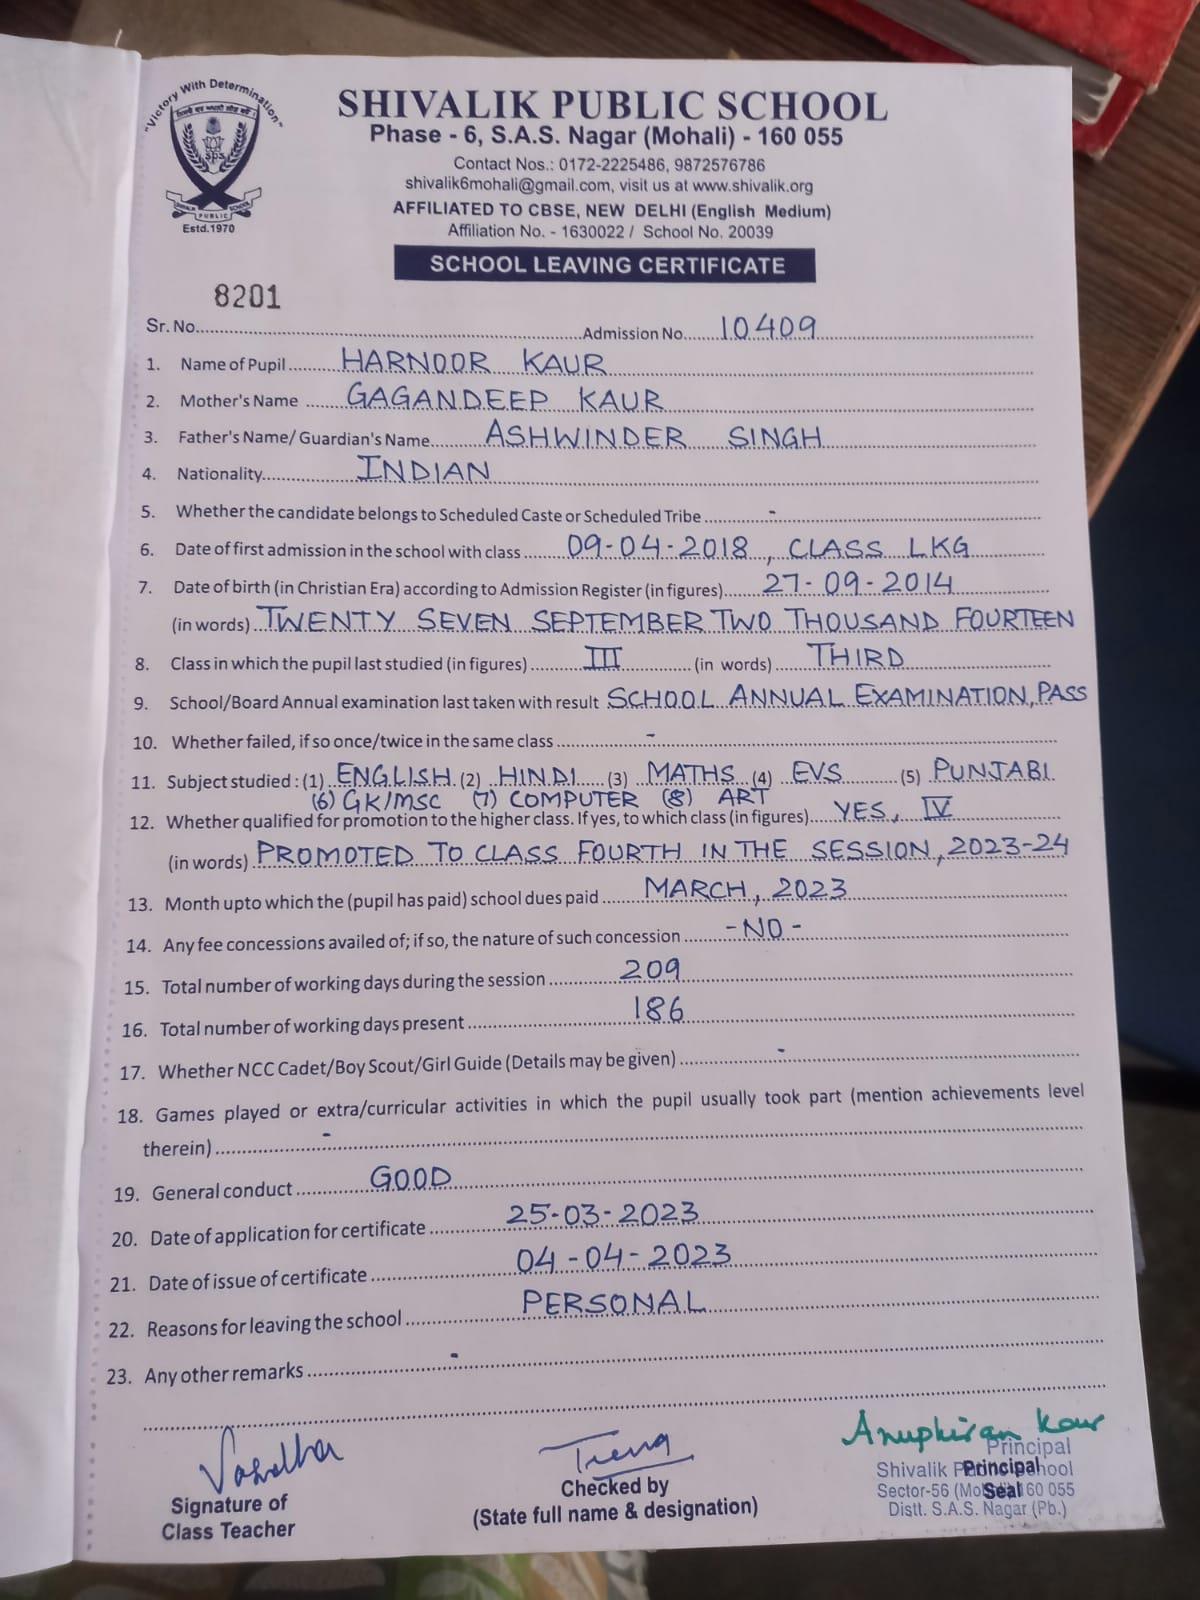 "Victory With Determination"
sps
SHIVALIK PUBLIC SCHOOL
Estd.1970
SHIVALIK PUBLIC SCHOOL
Phase - 6, S.A.S. Nagar (Mohali) - 160 055
Contact Nos.: 0172-2225486, 9872576786
shivalik6mohali@gmail.com, visit us at www.shivalik.org
AFFILIATED TO CBSE, NEW DELHI (English Medium)
Affiliation No. - 1630022 / School No. 20039
SCHOOL LEAVING CERTIFICATE
8201
Sr. No. Admission No. 10409
1. Name of Pupil HARNOOR KAUR
2. Mother's Name GAGANDEEP KAUR
3. Father's Name/ Guardian's Name ASHWINDER SINGH
4. Nationality INDIAN
5. Whether the candidate belongs to Scheduled Caste or Scheduled Tribe -
6. Date of first admission in the school with class 09-04-2018, CLASS LKG
7. Date of birth (in Christian Era) according to Admission Register (in figures) 27-09-2014
(in words) TWENTY SEVEN SEPTEMBER TWO THOUSAND FOURTEEN
8. Class in which the pupil last studied (in figures) III (in words) THIRD
9. School/Board Annual examination last taken with result SCHOOL ANNUAL EXAMINATION, PASS
10. Whether failed, if so once/twice in the same class -
11. Subject studied : (1) ENGLISH (2) HINDI (3) MATHS (4) EVS (5) PUNJABI
(6) GK/MSC (7) COMPUTER (8) ART
12. Whether qualified for promotion to the higher class. If yes, to which class (in figures) YES, IV
(in words) PROMOTED TO CLASS FOURTH IN THE SESSION, 2023-24
13. Month upto which the (pupil has paid) school dues paid MARCH, 2023
14. Any fee concessions availed of; if so, the nature of such concession -NO-
15. Total number of working days during the session 209
16. Total number of working days present 186
17. Whether NCC Cadet/Boy Scout/Girl Guide (Details may be given) -
18. Games played or extra/curricular activities in which the pupil usually took part (mention achievements level
therein) -
19. General conduct GOOD
20. Date of application for certificate 25-03-2023
21. Date of issue of certificate 04-04-2023
22. Reasons for leaving the school PERSONAL
23. Any other remarks -
Anupkiran Kaur
Principal
Shivalik Public School
Principal
Sector-56 (Mohali) 160 055
Seal
Distt. S.A.S. Nagar (Pb.)
Signature of
Class Teacher
Checked by
(State full name & designation)